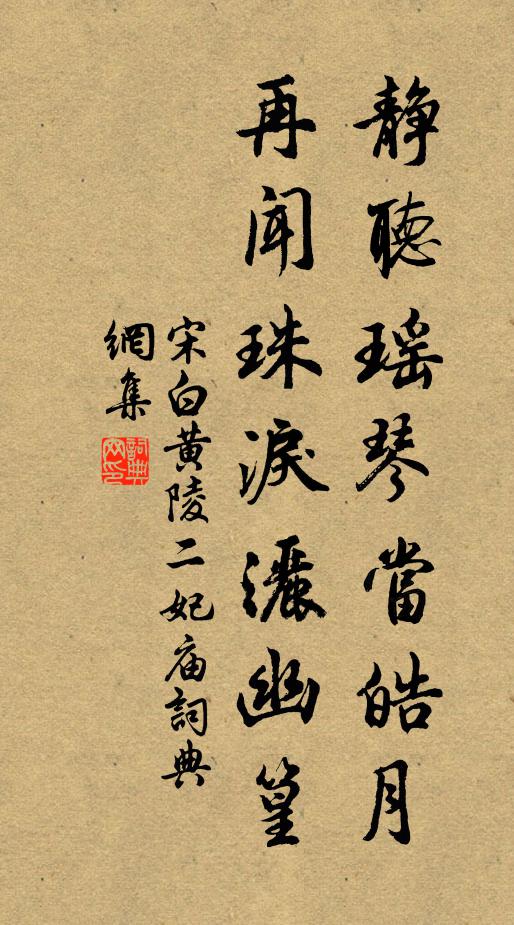 静聽瑶琴當皓月
再闻珠淚灑幽篁
宋白黄陵二妃庙詞典
網集
詞典
网印